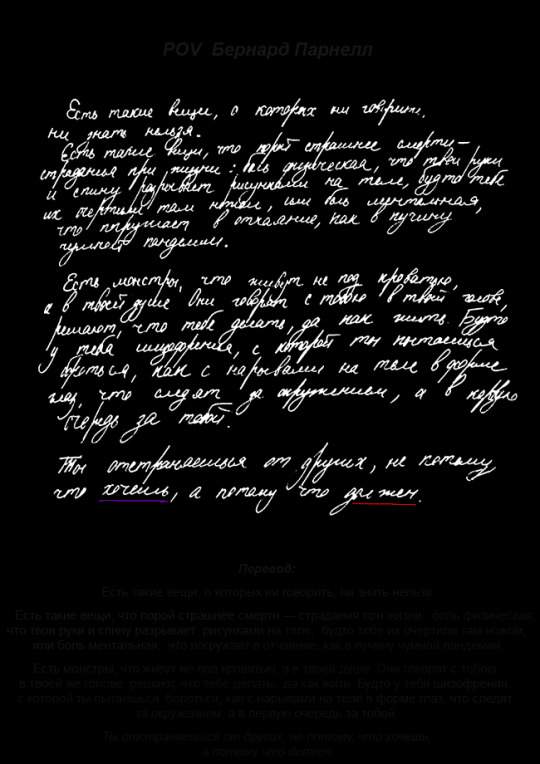 POV Бернард Парнелл
Есть такие вещи, о которых ни говорить,
ни знать нельзя.
Есть такие вещи, что порой страшнее смерти —
страдания при жизни: боль физическая, что твои руки
и спину разрывает рисунками на теле, будто тебе
их очертили там ножом, или боль ментальная,
что погружает в отчаяние, как в пучину
чумной пандемии.
Есть монстры, что живут не под кроватью,
а в твоей душе Они говорят с тобою в твоей голове,
решают, что тебе делать, да как жить. Будто
у тебя шизофрения, с которой ты пытаешься
бороться, как с нарывами на теле в форме
глаз, что следят за окружением, а в первую
очередь за тобой.
Ты отстраняешься от других, не потому,
что хочешь, а потому что должен.
Перевод:
Есть такие вещи, о которых ни говорить, ни знать нельзя
Есть такие вещи, что порой страшнее смерти — страдания при жизни: боль физическая,
что твои руки и спину разрывает рисунками на теле, будто тебе их очертили там ножом,
или боль ментальная, что погружает в отчаяние, как в пучину чумной пандемии.
Есть монстры, что живут не под кроватью, а в твоей душе. Они говорят с тобою
в твоей же голове, решают, что тебе делать, да как жить. Будто у тебя шизофрения,
с которой ты пытаешься бороться, как с нарывами на теле в форме глаз, что следят
за окружением, а в первую очередь за тобой.
Ты отстраняешься от других, не потому, что хочешь,
а потому что должен.